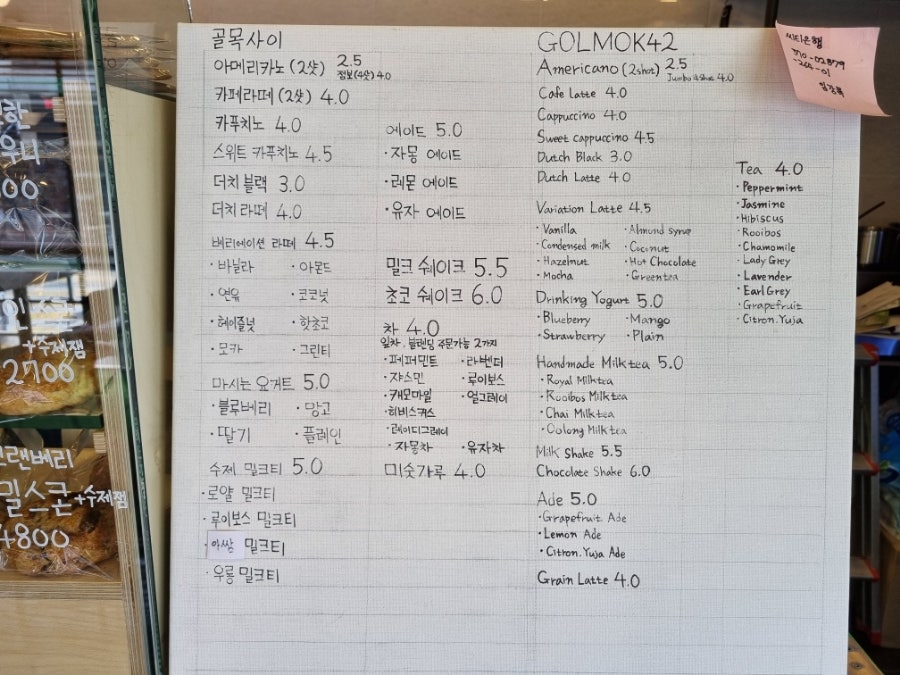 골목사이
아메리카노 (2샷) 2.5
점보(4샷) 4.0
카페라떼 (2샷) 4.0
카푸치노 4.0
스위트 카푸치노 4.5
더치 블랙 3.0
더치 라떼 4.0
베리에이션 라떼 4.5
·바닐라 ·아몬드
·연유 ·코코넛
·헤이즐넛 ·핫초코
·모카 ·그린티
마시는 요거트 5.0
·블루베리 ·망고
·딸기 ·플레인
수제 밀크티 5.0
·로얄 밀크티
·루이보스 밀크티
·아쌈 밀크티
·우롱 밀크티
에이드 5.0
·자몽 에이드
·레몬 에이드
·유자 에이드
밀크 쉐이크 5.5
초코 쉐이크 6.0
차 4.0
잎차. 블랜딩 주문가능 2가지
·페퍼민트 ·라벤더
·쟈스민 ·루이보스
·캐모마일 ·얼그레이
·히비스커스
·레이디그레이
·자몽차 ·유자차
미숫가루 4.0
GOLMOK42
Americano (2shot) 2.5
Jumbo 4shot 4.0
Cafe Latte 4.0
Cappuccino 4.0
Sweet cappuccino 4.5
Dutch Black 3.0
Dutch Latte 4.0
Variation Latte 4.5
·Vanilla ·Almond syrup
·Condensed milk ·Coconut
·Hazelnut ·Hot Chocolate
·Mocha ·Greentea
Drinking Yogurt 5.0
·Blueberry ·Mango
·Strawberry ·Plain
Handmade Milktea 5.0
·Royal Milktea
·Rooibos Milktea
·Chai Milktea
·Oolong Milktea
Milk Shake 5.5
Chocolate Shake 6.0
Ade 5.0
·Grapefruit Ade
·Lemon Ade
·Citron.Yuja Ade
Grain Latte 4.0
Tea 4.0
·Peppermint
·Jasmine
·Hibiscus
·Rooibos
·Chamomile
·Lady Grey
·Lavender
·Earl Grey
·Grapefruit
·Citron.Yuja
씨티은행
-264-01
우니
00
+수제잼
2700
랜베리
밀스콘 +수제잼
4800